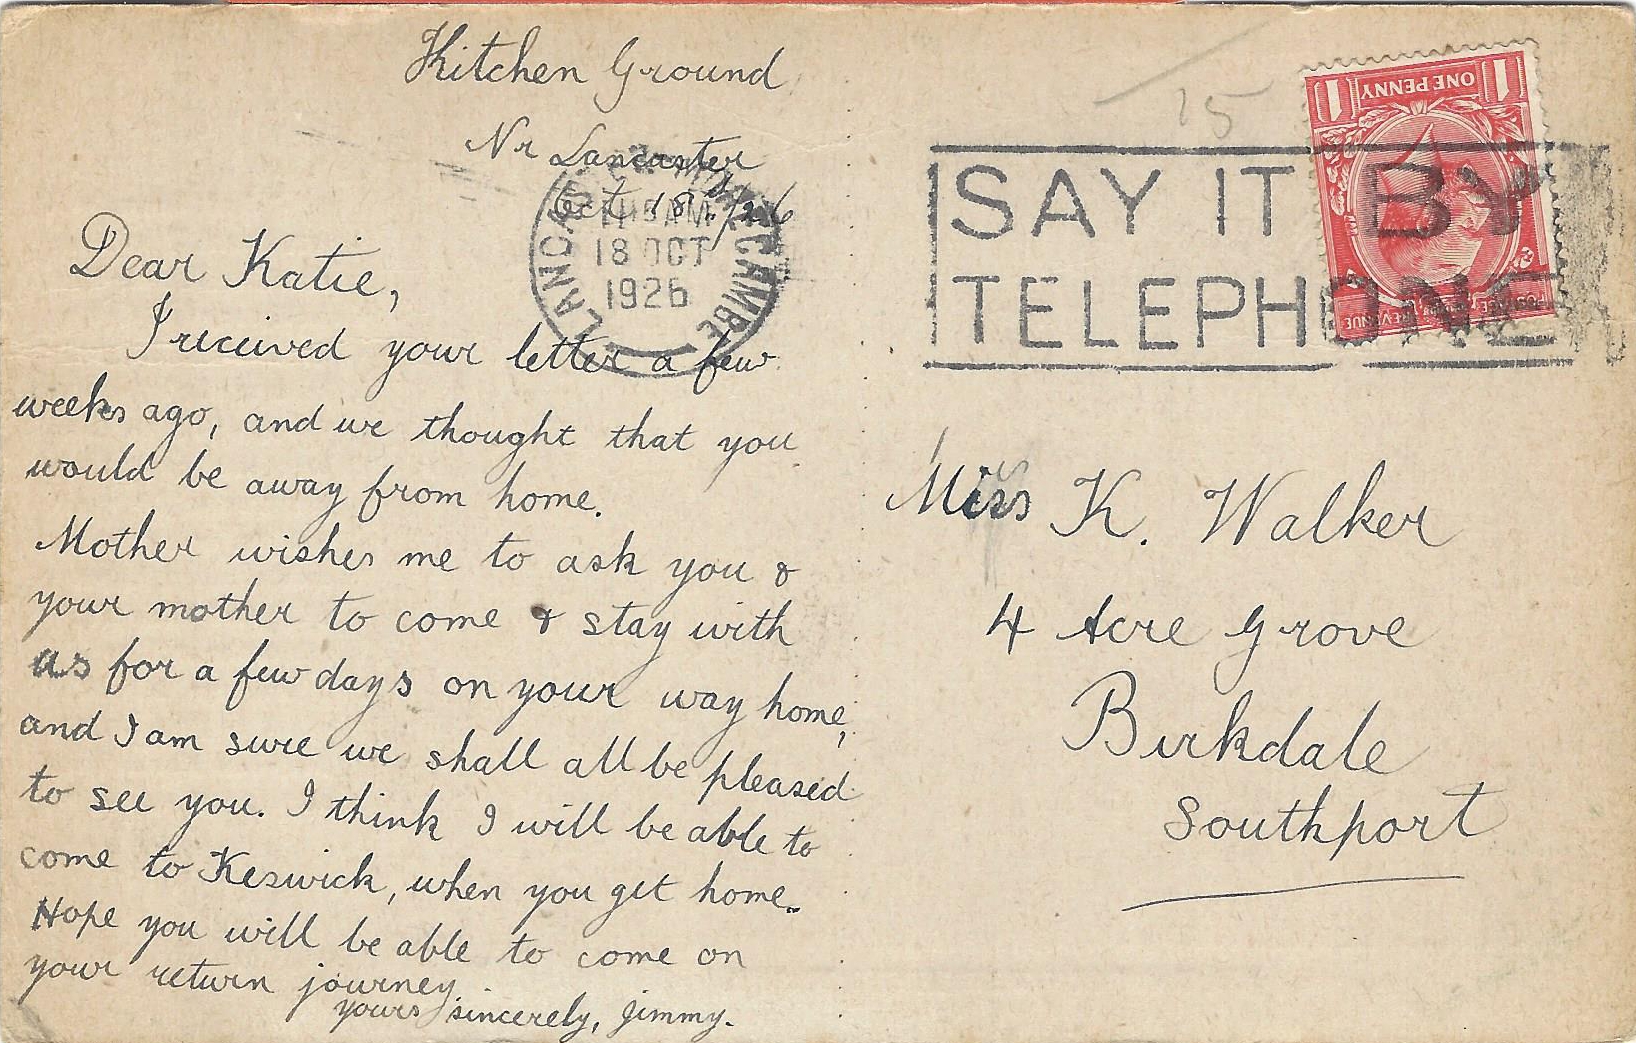 Kitchen Ground
Nr Lancaster
Oct 18th/26
Dear Katie,
I received your letter a few
weeks ago, and we thought that you
would be away from home.
Mother wishes me to ask you &
your mother to come & stay with
us for a few days on your way home,
and I am sure we shall all be pleased
to see you. I think I will be able to
come to Keswick, when you get home.
Hope you will be able to come on
your return journey.
yours sincerely, Jimmy.
LANCASTER MORECAMBE
11 15 AM
18 OCT
1926
15
SAY IT BY
TELEPHONE
1 ONE PENNY 1
POSTAGE REVENUE
Miss K. Walker
4 Acre Grove
Birkdale
Southport